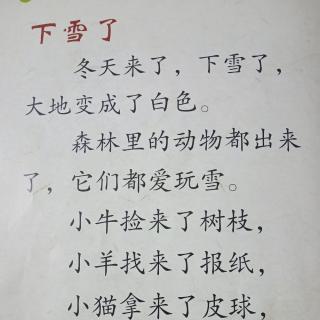 下雪了
冬天来了，下雪了，
大地变成了白色。
森林里的动物都出来
了，它们都爱玩雪。
小牛捡来了树枝，
小羊找来了报纸，
小猫拿来了皮球，